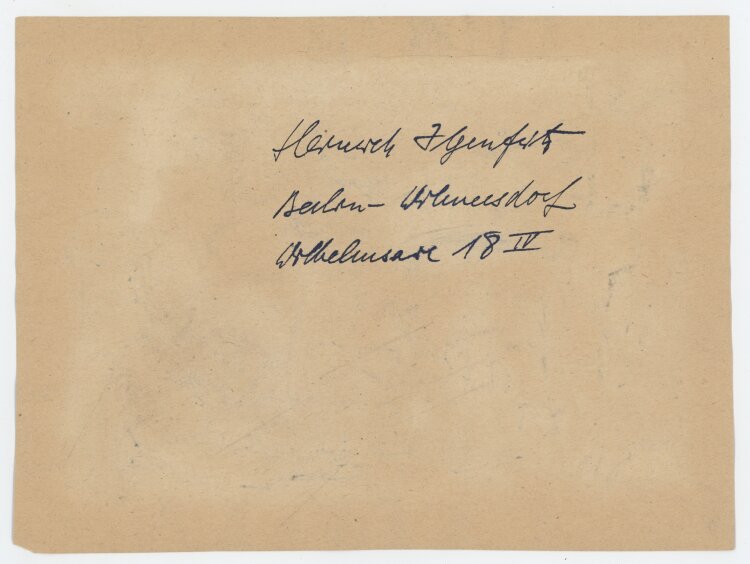 Heinrich Ilgenfritz
Berlin-Wilmersdorf
Wilhelmsaue 18 IV